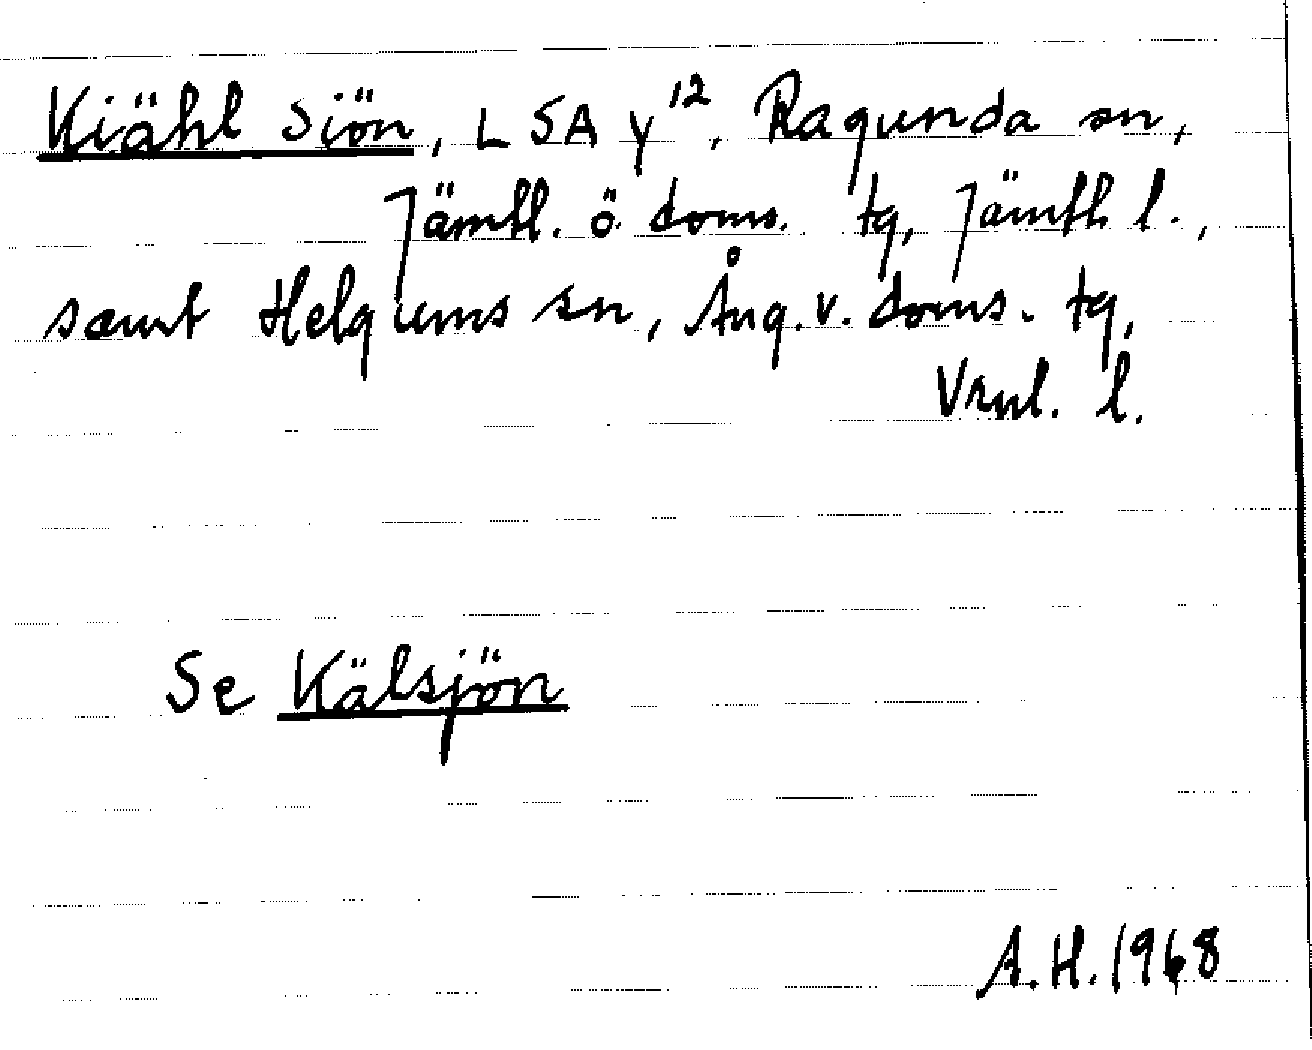 Kiähl Siön, LSA Y¹², Ragunda sn,
Jämtl. ö. doms. tg, Jämtl. l.,
samt Helgums sn, Ång. v. doms. tg,
Vrnl. l.
Se Kälsjön
A.H. 1968